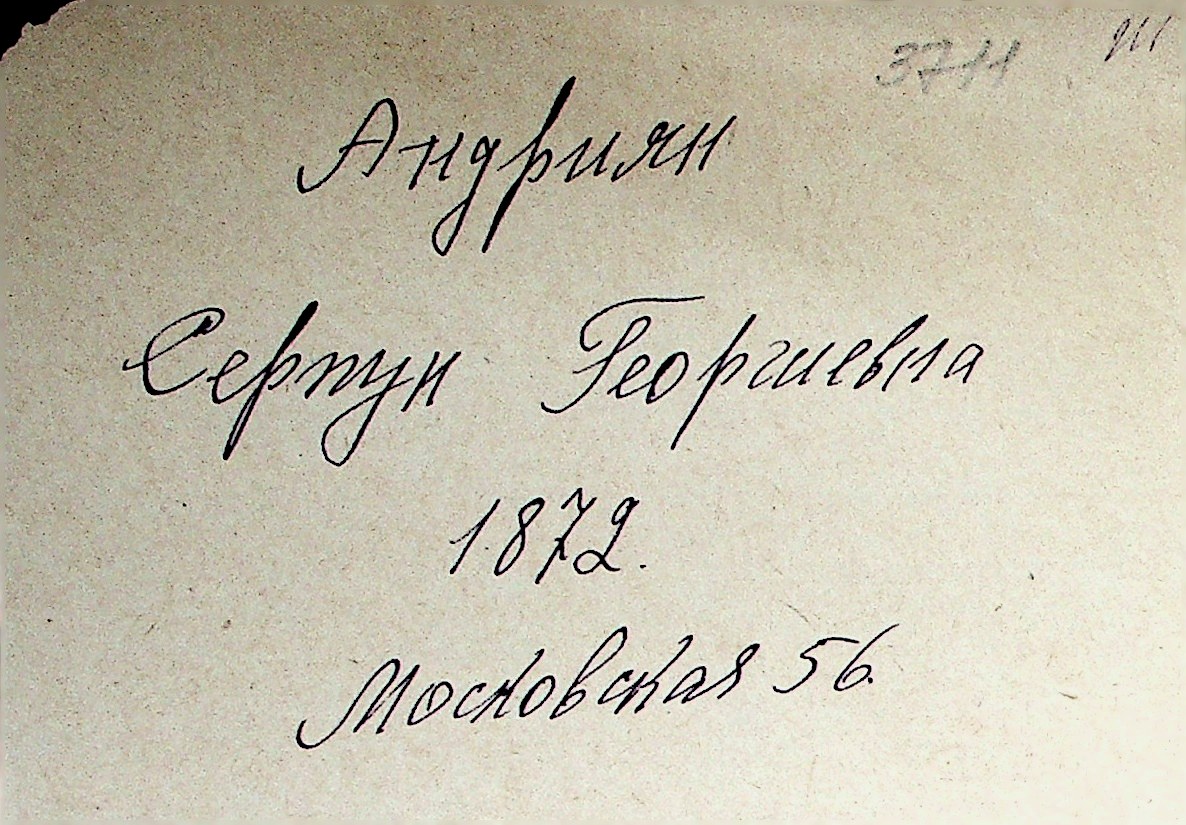 3744
Андриян
Серпун Георгиевна
1872.
Московская 56.